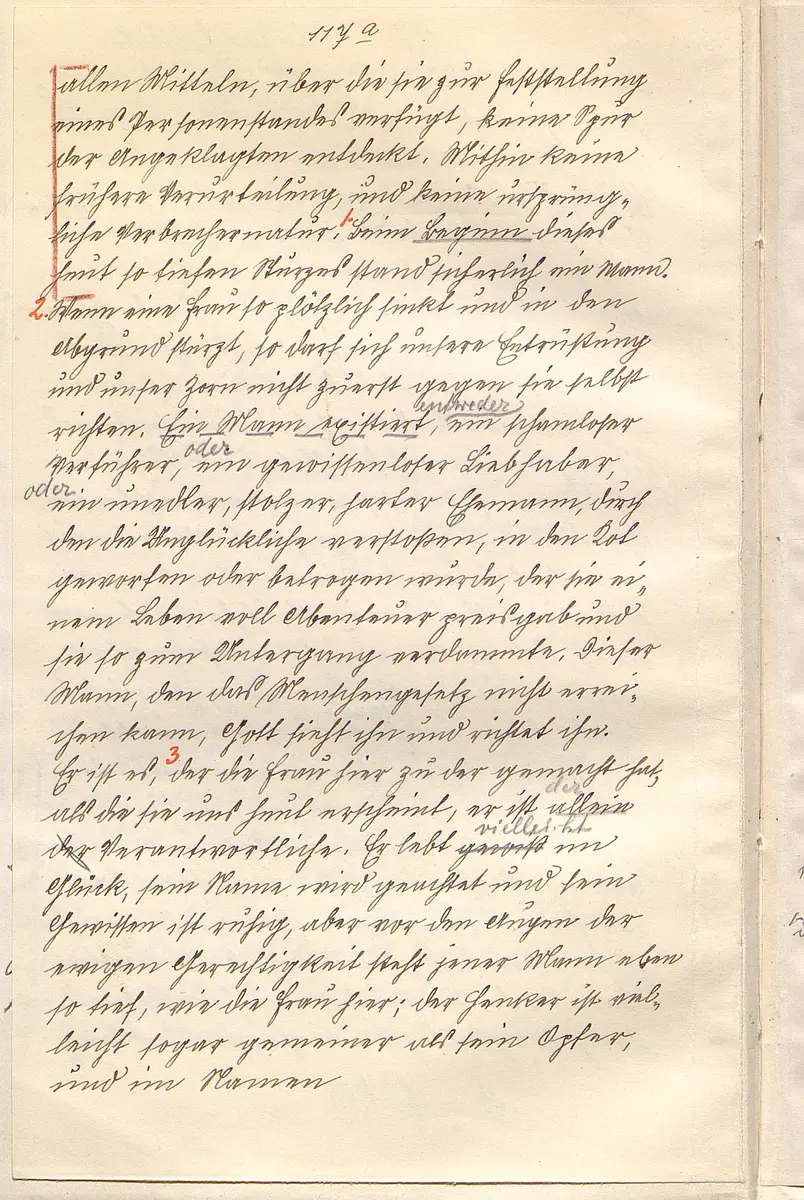 117 a
allen Mitteln, über die sie zur Feststellung
eines Personenstandes verfügt, keine Spur
der Angeklagten entdeckt. Mithin keine
frühere Verurteilung, und keine ursprüng-
liche Verbrechernatur. 1. Beim Beginn dieses
heut so tiefen Sturzes stand sicherlich ein Mann.
2. Wenn eine Frau so plötzlich sinkt und in den
Abgrund stürzt, so darf sich unsere Entrüstung
und unser Zorn nicht zuerst gegen sie selbst
entweder
richten. Ein Mann existiert, ein schamloser
oder
Verführer, ein gewissenloser Liebhaber,
oder
ein unedler, stolzer, harter Ehemann, durch
den die Unglückliche verstoßen, in den Kot
geworfen oder betrogen wurde, der sie ei-
nem Leben voll Abenteuer preisgab und
sie so zum Untergang verdammte. Dieser
Mann, den das Menschengesetz nicht errei-
chen kann, Gott sieht ihn und richtet ihn.
3
Er ist es, der die Frau hier zu der gemacht hat,
der
als die sie uns heut erscheint, er ist allein
vielleicht
der Verantwortliche. Er lebt gewiß im
Glück, sein Name wird geachtet und sein
Gewissen ist ruhig, aber vor den Augen der
ewigen Gerechtigkeit steht jener Mann eben
so tief, wie die Frau hier; der Henker ist viel-
leicht sogar gemeiner als sein Opfer,
und im Namen